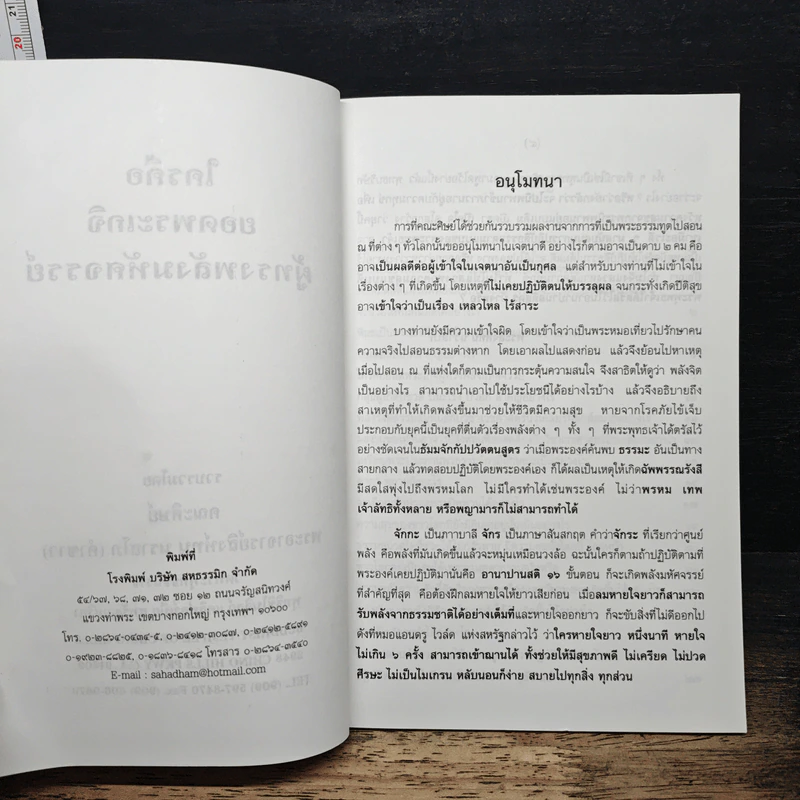 21
20
พิมพ์ที่
โรงพิมพ์ บริษัท สหธรรมิก จำกัด
๕๔/๖๗, ๖๘, ๗๑, ๗๒ ซอย ๑๒ ถนนจรัญสนิทวงศ์
แขวงท่าพระ เขตบางกอกใหญ่ กรุงเทพฯ ๑๐๖๐๐
โทร. ๐-๒๘๖๔-๐๔๓๔-๕, ๐-๒๔๑๒-๓๐๘๗, ๐-๒๔๑๒-๕๘๙๑
๐-๑๙๒๓-๘๘๒๕, ๐-๑๘๓๖-๘๔๑๘ โทรสาร ๐-๒๘๖๔-๓๕๔๐
E-mail : sahadham@hotmail.com
อนุโมทนา
การที่คณะศิษย์ได้ช่วยกันรวบรวมผลงานจากการที่เป็นพระธรรมทูตไปสอน
ณ ที่ต่าง ๆ ทั่วโลกนั้นขออนุโมทนาในเจตนาดี อย่างไรก็ตามอาจเป็นดาบ ๒ คม คือ
อาจเป็นผลดีต่อผู้เข้าใจในเจตนาอันเป็นกุศล แต่สำหรับบางท่านที่ไม่เข้าใจใน
เรื่องต่าง ๆ ที่เกิดขึ้น โดยเหตุที่ไม่เคยปฏิบัติตนให้บรรลุผล จนกระทั่งเกิดปีติสุข
อาจเข้าใจว่าเป็นเรื่อง เหลวไหล ไร้สาระ
บางท่านยังมีความเข้าใจผิด โดยเข้าใจว่าเป็นพระหมอเที่ยวไปรักษาคน
ความจริงไปสอนธรรมต่างหาก โดยเอาผลไปแสดงก่อน แล้วจึงย้อนไปหาเหตุ
เมื่อไปสอน ณ ที่แห่งใดก็ตามเป็นการกระตุ้นความสนใจ จึงสาธิตให้ดูว่า พลังจิต
เป็นอย่างไร สามารถนำเอาไปใช้ประโยชน์ได้อย่างไรบ้าง แล้วจึงอธิบายถึง
สาเหตุที่ทำให้เกิดพลังขึ้นมาช่วยให้ชีวิตมีความสุข หายจากโรคภัยไข้เจ็บ
ประกอบกับยุคนี้เป็นยุคที่ตื่นตัวเรื่องพลังต่าง ๆ ทั้ง ๆ ที่พระพุทธเจ้าได้ตรัสไว้
อย่างชัดเจนในธัมมจักกัปปวัตตนสูตร ว่าเมื่อพระองค์ค้นพบ ธรรมะ อันเป็นทาง
สายกลาง แล้วทดสอบปฏิบัติโดยพระองค์เอง ก็ได้ผลเป็นเหตุให้เกิดฉัพพรรณรังสี
มีสดใสพุ่งไปถึงพรหมโลก ไม่มีใครทำได้เช่นพระองค์ ไม่ว่าพรหม เทพ
เจ้าลัทธิทั้งหลาย หรือพญามารก็ไม่สามารถทำได้
จักกะ เป็นภาาบาลี จักร เป็นภาษาสันสกฤต คำว่าจักระ ที่เรียกว่าศูนย์
พลัง คือพลังที่มันเกิดขึ้นแล้วจะหมุนเหมือนวงล้อ ฉะนั้นใครก็ตามถ้าปฏิบัติตามที่
พระองค์เคยปฏิบัติมานั่นคือ อานาปานสติ ๑๖ ขั้นตอน ก็จะเกิดพลังมหัศจรรย์
ที่สำคัญที่สุด คือต้องฝึกลมหายใจให้ยาวเสียก่อน เมื่อลมหายใจยาวก็สามารถ
รับพลังจากธรรมชาติได้อย่างเต็มที่และหายใจออกยาว ก็จะขับสิ่งที่ไม่ดีออกไป
ดังที่หมอแอนดรู ไวล์ด แห่งสหรัฐกล่าวไว้ ว่าใครหายใจยาว หนึ่งนาที หายใจ
ไม่เกิน ๖ ครั้ง สามารถเข้าฌานได้ ทั้งช่วยให้มีสุขภาพดี ไม่เครียด ไม่ปวด
ศีรษะ ไม่เป็นไมเกรน หลับนอนก็ง่าย สบายไปทุกสิ่ง ทุกส่วน